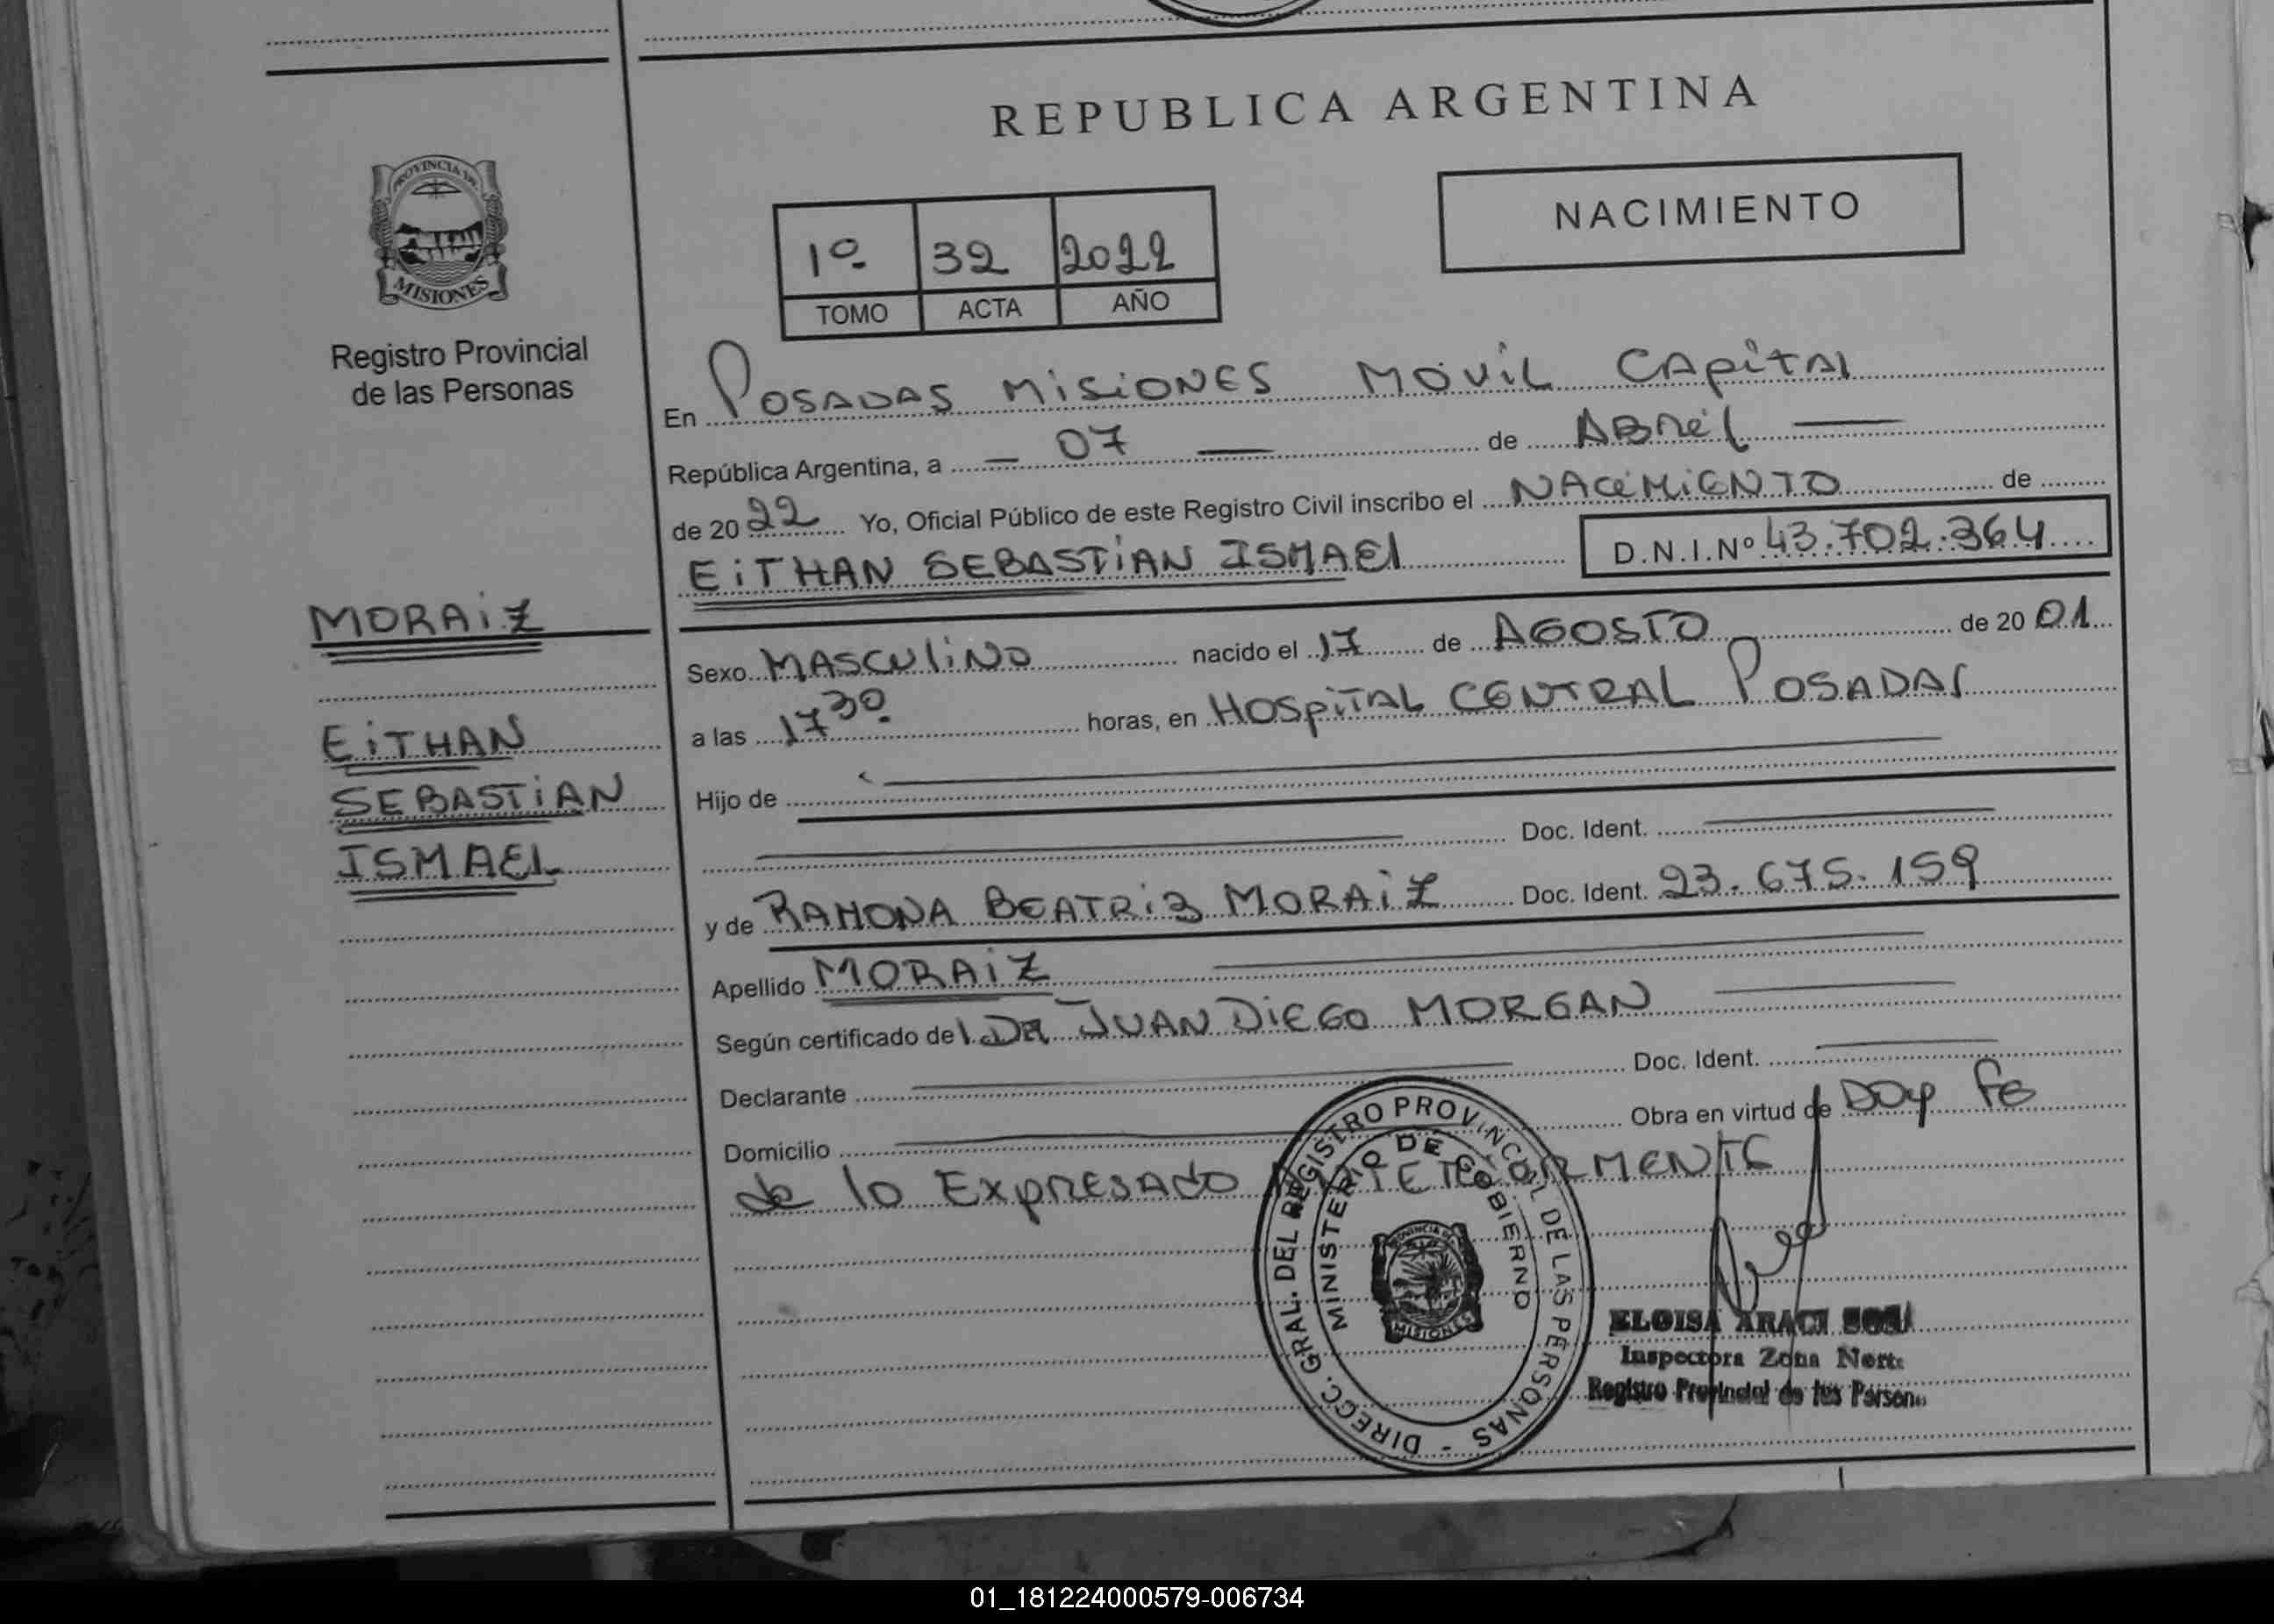 REPUBLICA ARGENTINA
PROVINCIA DE
MISIONES
Registro Provincial
de las Personas
NACIMIENTO
1º 32 2022
TOMO ACTA AÑO
En POSADAS MISIONES MOVIL CAPITAL
República Argentina, a 07 de ABRIL
de 2022 Yo, Oficial Público de este Registro Civil inscribo el NACIMIENTO de
EITHAN SEBASTIAN ISMAEL D.N.I.Nº 43.702.364
MORAIZ
EITHAN
SEBASTIAN
ISMAEL
Sexo MASCULINO nacido el 17 de AGOSTO de 20 01
a las 17 30 horas, en HOSPITAL CENTRAL POSADAS
Hijo de
Doc. Ident.
y de RAMONA BEATRIZ MORAIZ Doc. Ident. 23.675.159
Apellido MORAIZ
Según certificado del DR JUAN DIEGO MORGAN
Declarante Doc. Ident.
Domicilio Obra en virtud de DOY FE
de lo EXPRESADO ANTERIORMENTE
DIRECC. GRAL. DEL REGISTRO PROVINCIAL DE LAS PERSONAS -
MINISTERIO DE GOBIERNO
MISIONES
ELOISA ARACI
Inspectora Zona Norte
Registro Provincial de las Person
01_181224000579-006734